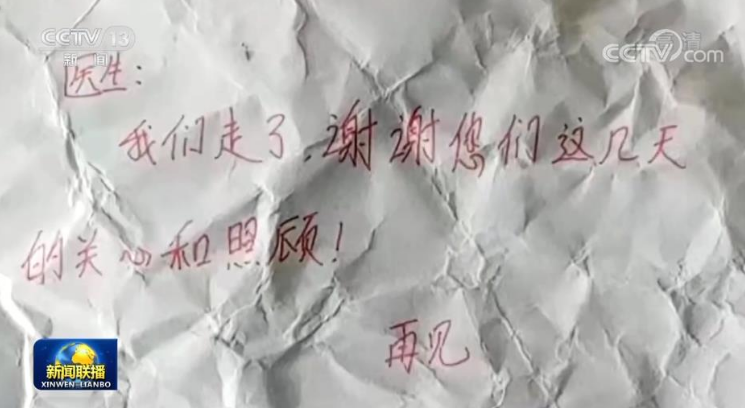 CCTV 13
新闻
高清
CCTV.com
医生:
我们走了.谢谢您们这几天
的关心和照顾!
再见
新闻联播
XINWEN LIANBO